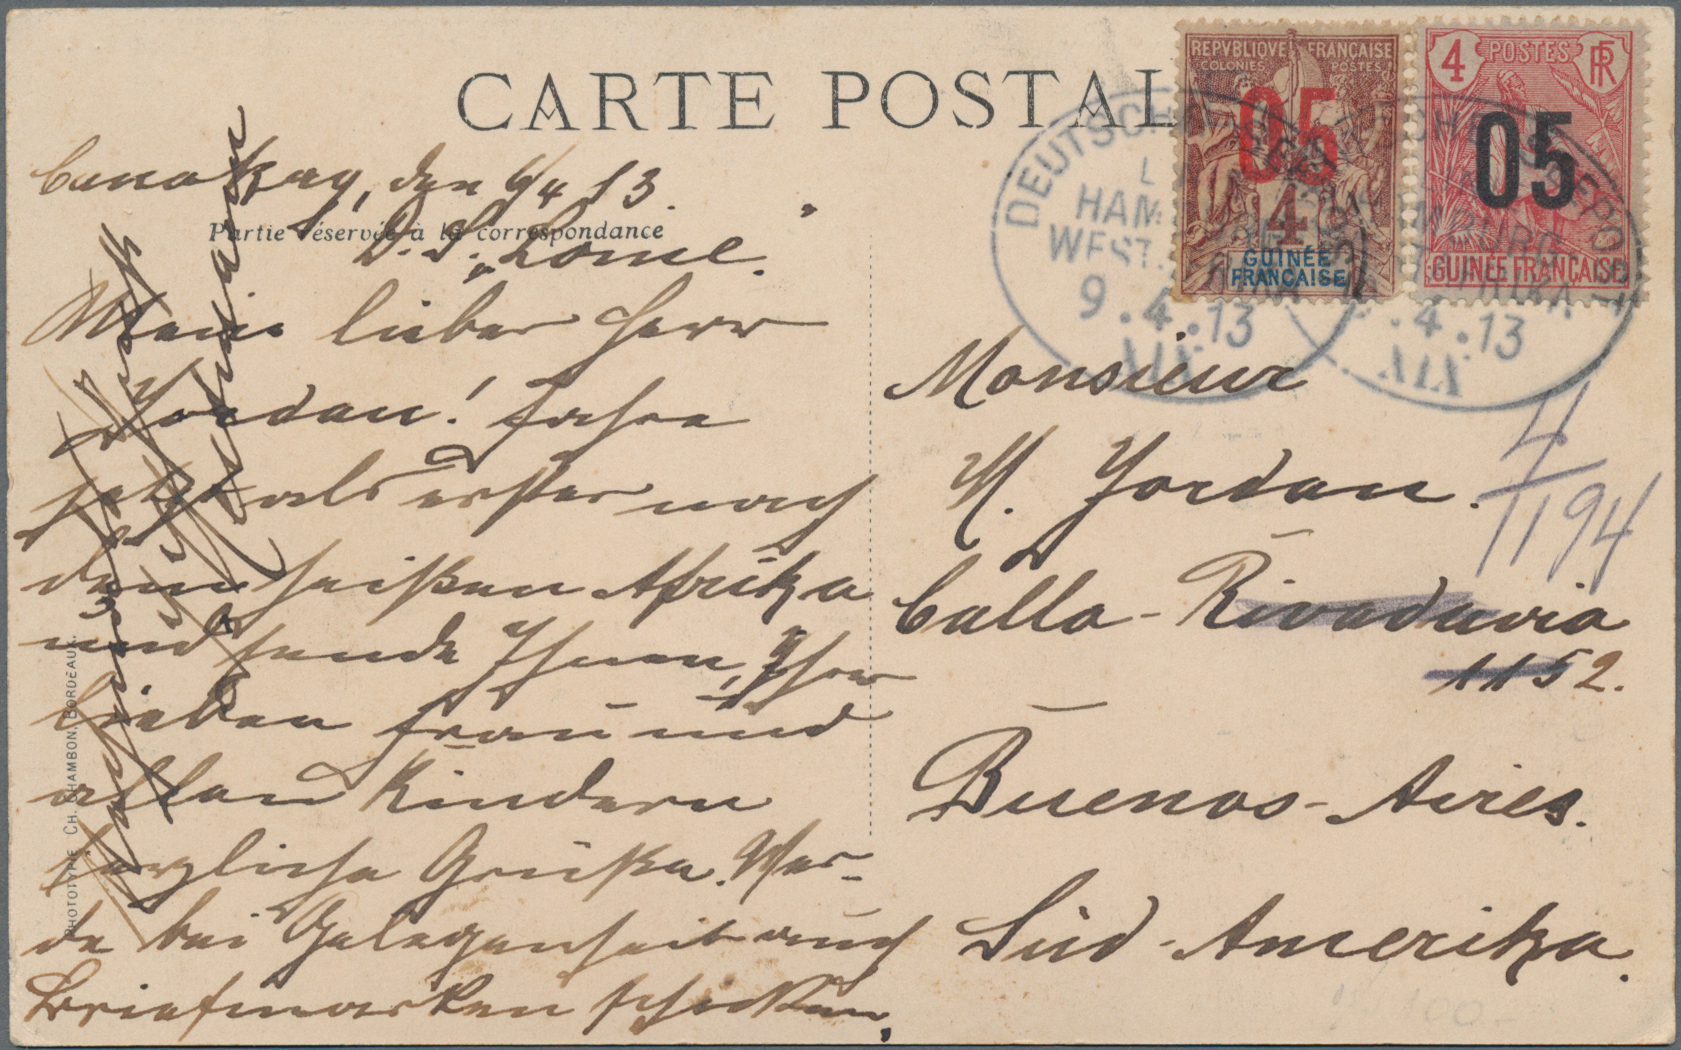 CARTE POSTALE
Partie réservée à la correspondance
Conakry, den 6/4 13.
D. S. Lome.
Mein lieber Herr
Jordan! Fahre
jetzt als erster nach
dem heißen Afrika
und sende Ihnen, Ihrer
lieben Frau und
allen Kindern
herzliche Grüße. Wer-
de bei Gelegenheit auch
Briefmarken schicken.
PHOTOTYPIE CH. CHAMBON, BORDEAUX
REPVBLIQVE FRANÇAISE
COLONIES POSTES
05
4
GUINÉE
FRANÇAISE
4 POSTES RF
05
GUINÉE FRANÇAISE
DEUTSCHE SEEPOST
HAMBURG
WESTAFRIKA
9.4.13
XIX
DEUTSCHE SEEPOST
HAMBURG
WESTAFRIKA
9.4.13
XIX
Monsieur
M. Jordan.
Calle-Rivadavia
1152.
Buenos-Aires.
Süd-Amerika.
4/1194
100-